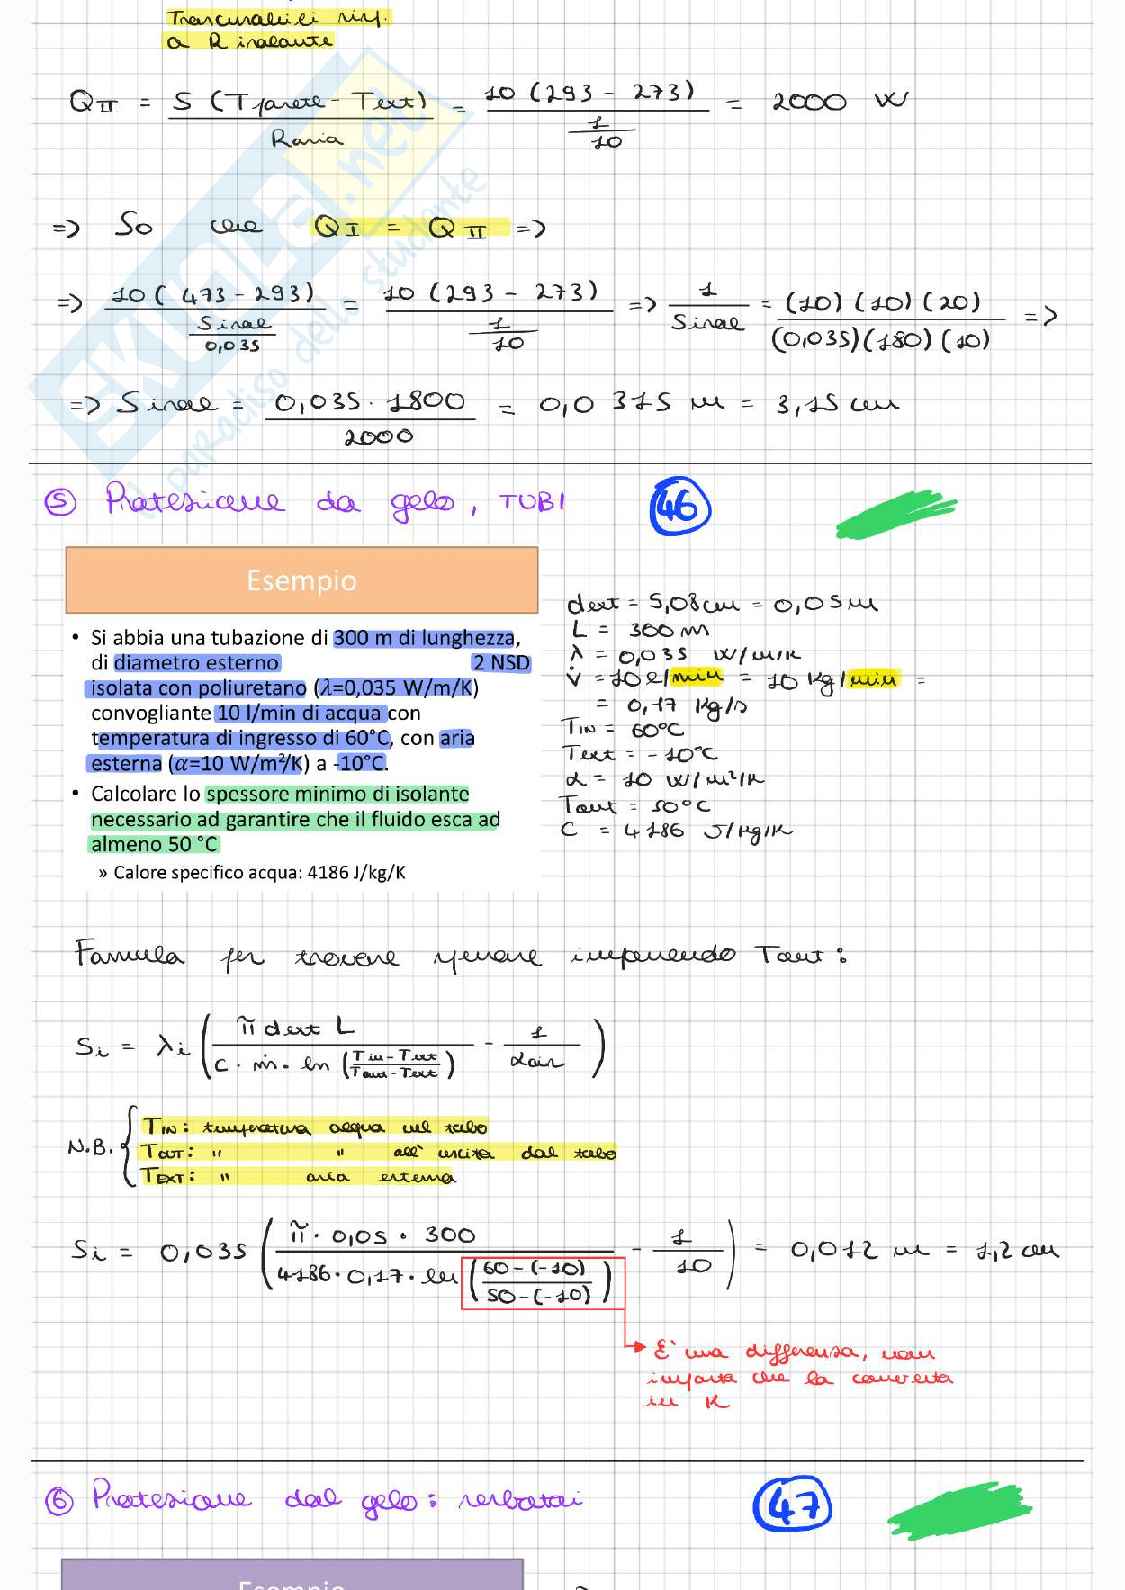 Trascurabili risp.
a R isolante
QII = S (Tparete - Text) / Raria = 10 (293 - 273) / (1/10) = 2000 W
=> So che QI = QII =>
=> 10 (473 - 293) / (Sisol / 0,035) = 10 (293 - 273) / (1/10) => 1 / Sisol = (10) (10) (20) / (0,035) (180) (10) =>
=> Sisol = 0,035 · 1800 / 2000 = 0,0315 m = 3,15 cm
SKUOLA.net
il paradiso dello studente
⑤ Protezione da gelo, TUBI 46
Esempio
• Si abbia una tubazione di 300 m di lunghezza,
di diametro esterno 2 NSD
isolata con poliuretano (λ=0,035 W/m/K)
convogliante 10 l/min di acqua con
temperatura di ingresso di 60°C, con aria
esterna (α=10 W/m²/K) a -10°C.
• Calcolare lo spessore minimo di isolante
necessario ad garantire che il fluido esca ad
almeno 50 °C
» Calore specifico acqua: 4186 J/kg/K
dext = 5,08 cm = 0,05 m
L = 300 m
λ = 0,035 W/m/K
V̇ = 10 l/min = 10 Kg/min =
= 0,17 Kg/s
TIN = 60°C
Text = -10°C
α = 10 W/m²/K
Tout = 50°C
C = 4186 J/Kg/K
Formula per trovare spessore imponendo Tout:
Si = λi ( π dext L / C · ṁ · ln (Tin - Text / Tout - Text) - 1 / αair )
N.B. { TIN: temperatura acqua nel tubo
TOUT: " " all' uscita dal tubo
TEXT: " aria esterna
Si = 0,035 ( π · 0,05 · 300 / 4186 · 0,17 · ln (60 - (-10) / 50 - (-10)) - 1 / 10 ) = 0,012 m = 1,2 cm
E' una differenza, non
importa che la converta
in K
⑥ Protezione dal gelo: serbatoi 47
Esempio